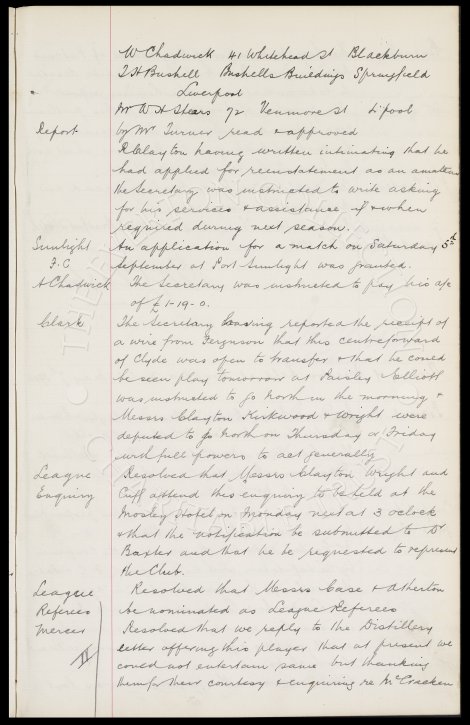 W Chadwick 41 Whitehead St Blackburn
T H Bushell Bushells Buildings Springfield
Liverpool
Mr W H Stears 72 Venmore St L'pool
Report by Mr Turner read & approved
R Clayton having written intimating that he
had applied for reinstatement as an amateur
the Secretary was instructed to write asking
for his services & assistance if & when
required during next season.
Sunlight An application for a match on Saturday 5th
F.C. September at Port Sunlight was granted.
A Chadwick The Secretary was instructed to pay his a/c
of £1-19-0.
Clark The Secretary having reported the receipt of
a wire from Ferguson that this centreforward
of Clyde was open to transfer & that he could
be seen play tomorrow at Paisley Elliott
was instructed to go North in the morning &
Messrs Clayton Kirkwood & Wright were
deputed to go North on Thursday or Friday
with full powers to act generally
League Resolved that Messrs Clayton Wright and
Enquiry Cuff attend this enquiry to be held at the
Mosley Hotel on Monday next at 3 oclock
& that the notification be submitted to Dr
Baxter and that he be requested to represent
the Club.
League Resolved that Messrs Case & Atherton
Referees be nominated as League Referees
Mercer Resolved that we reply to the Distillery
letter offering this player that at present we
II could not entertain same but thanking
them for their courtesy & enquiring re McCracken